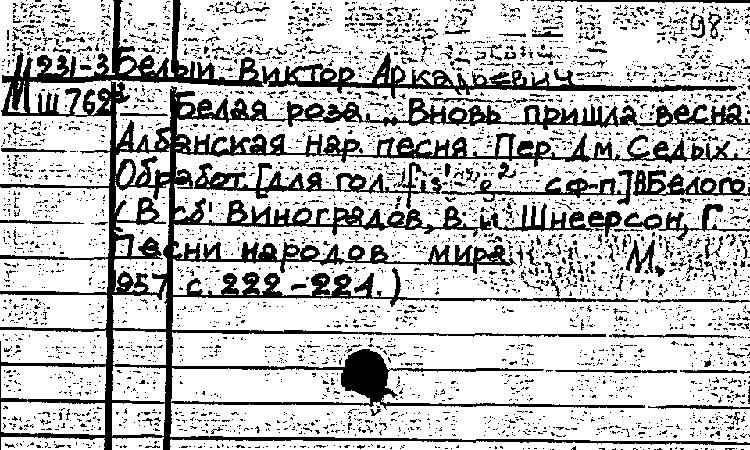 98
М 231-3 Белый. Виктор Аркадьевич
Ш 762 Белая роза. „Вновь пришла весна.
Албанская нар. песня. Пер. Дм. Седых.
Обработ. [для гол. fis¹-g² с ф-п.] В. Белого
(В сб: Виноградов, В. и Шнеерсон, Г.
Песни народов мира. М.
1957 с. 222-224.)